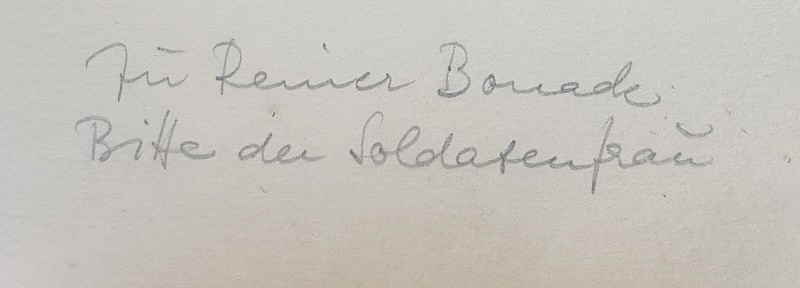 Zu Reiner Bonack
Bitte der Soldatenfrau